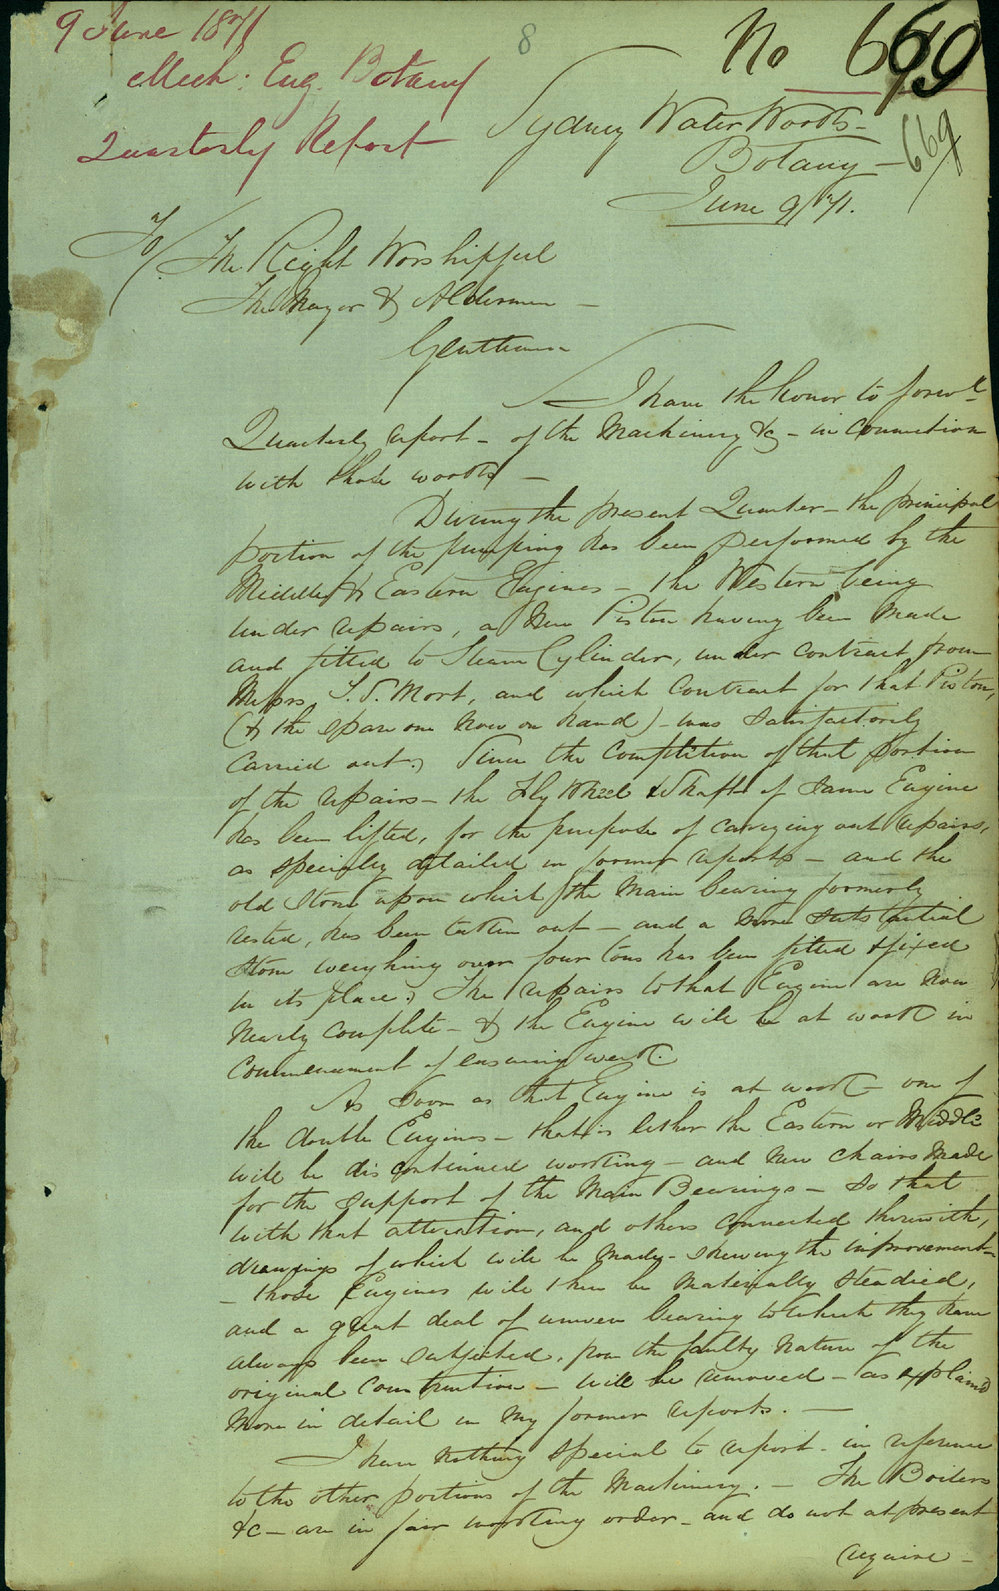 9 June 1871
Mech: Eng. Botany
Quarterly Report
8
No 669
669
Sydney Water Works -
Botany -
June 9/71.
To/ The Right Worshipful
The Mayor & Aldermen -
Gentlemen
I have the honor to forwd
Quarterly report - of the Machinery &c - in connection
with these works -
During the present Quarter - the principal
portion of the pumping has been performed by the
Middle & Eastern Engines - the Western being
under repairs, a New Piston having been made
and fitted to Steam Cylinder, under contract from
Messrs T. S. Mort, and which Contract for that Piston,
(& the spare one now on hand) - was satisfactorily
Carried out. Since the Completion of that portion
of the repairs - the Fly Wheel & Shaft of same Engine
has been lifted, for the purpose of carrying out repairs,
as specially detailed in former reports - and the
old Stone upon which the Main bearing formerly
rested, has been taken out - and a more substantial
Stone weighing over four tons has been fitted & fixed
in its place. The repairs to that Engine are now
nearly complete - & the Engine will be at work in
Commencement of ensuing week.
As soon as that Engine is at work - one of
the double Engines - that is either the Eastern or Middle
will be discontinued working - and new chairs made
for the support of the Main Bearings - so that
with that alteration, and others connected therewith,
drawings of which will be made - shewing the improvements
- those Engines will then be Materially steadied,
and a great deal of uneven bearing to which they have
always been subjected, from the faulty nature of the
original construction - will be removed - as explained
more in detail in my former reports. -
I have nothing special to report - in reference
to the other portions of the Machinery. - The Boilers
&c - are in fair working order - and do not at present
require -